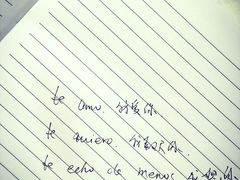 te amo. 我爱你.
te quiero. 我喜欢你.
te echo de menos 我想你